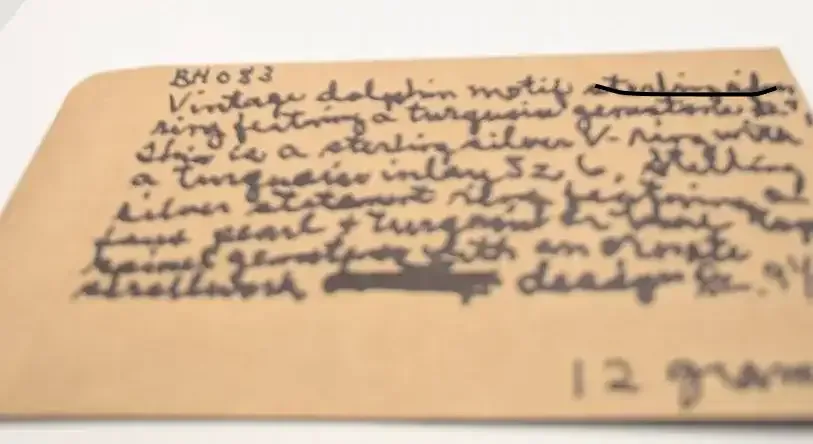 BH083
Vintage dolphin motif
ring featring a turquoise gemstone Sz.
This is a sterling silver V-ring with
a turquoise inlay Sz 6. Stelling
silver statement ring featring a
faux pearl + turquoise
gemstones with an ornate
scrollwork design Sz. 9
12 gram